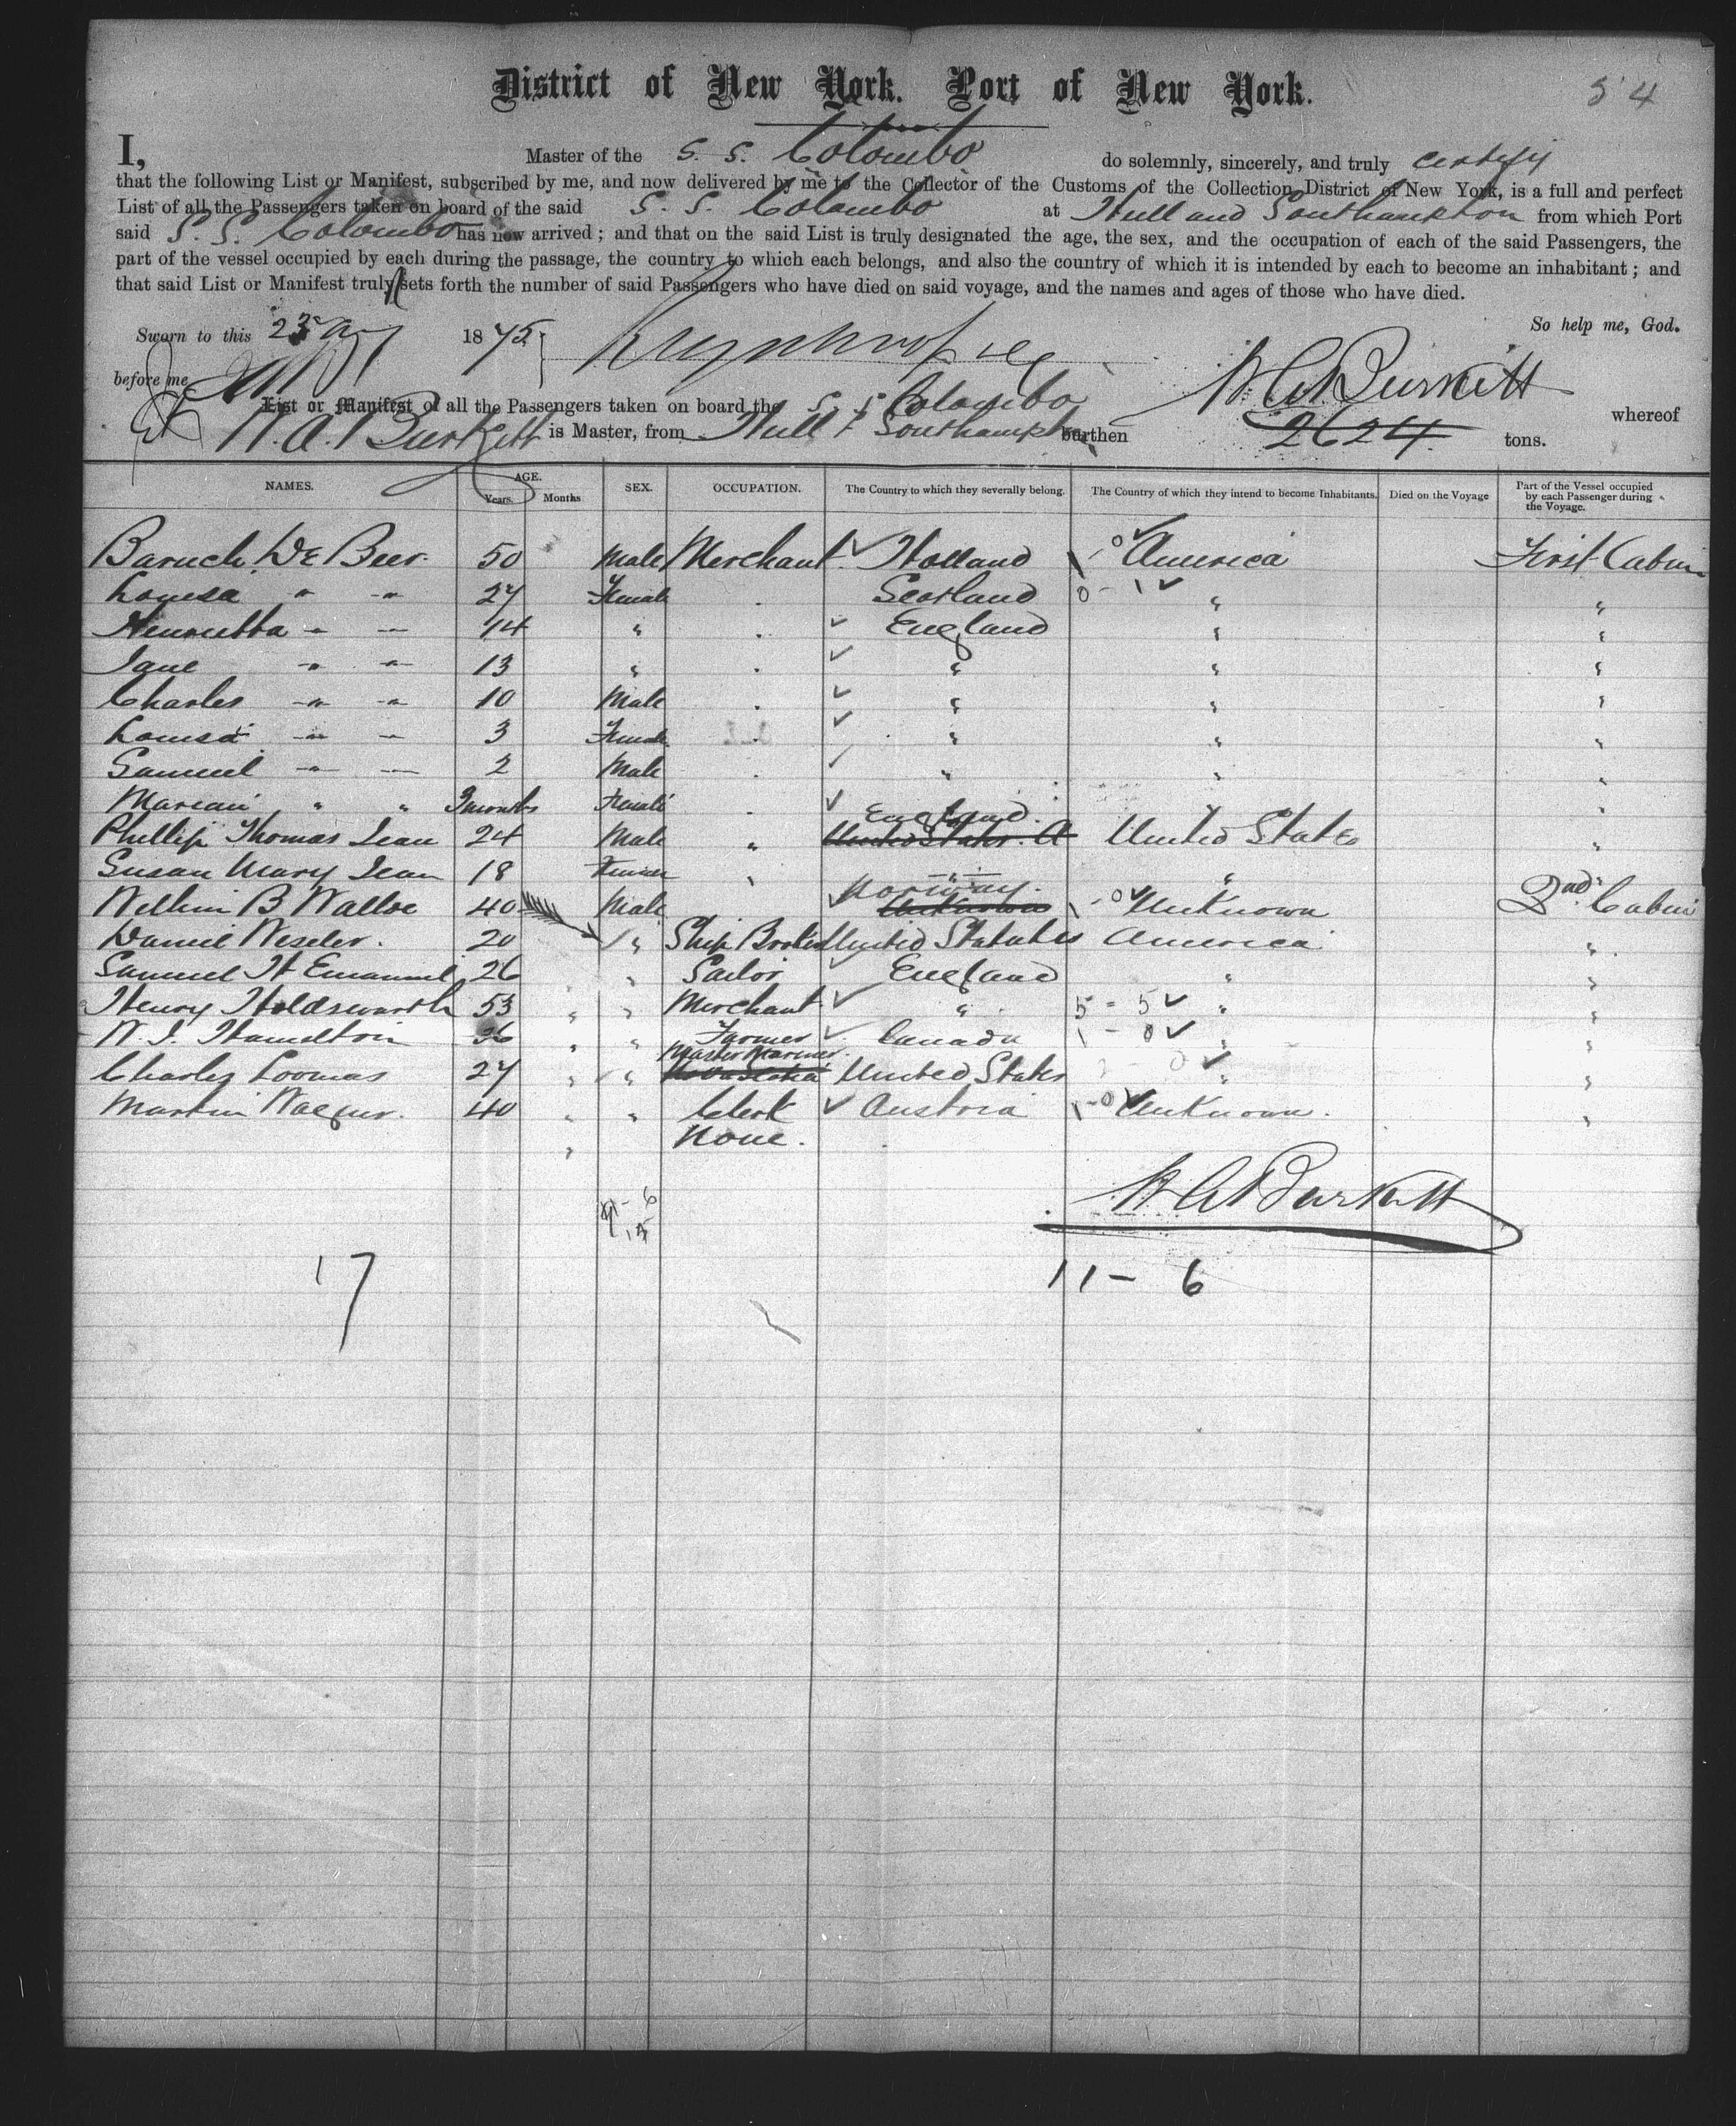 District of New York. Port of New York. 54
I, Master of the S. S. Colombo do solemnly, sincerely, and truly certify
that the following List or Manifest, subscribed by me, and now delivered by me to the Collector of the Customs of the Collection District of New York, is a full and perfect
List of all the Passengers taken on board of the said S. S. Colombo at Hull and Southampton from which Port
said S. S. Colombo has now arrived; and that on the said List is truly designated the age, the sex, and the occupation of each of the said Passengers, the
part of the vessel occupied by each during the passage, the country to which each belongs, and also the country of which it is intended by each to become an inhabitant; and
that said List or Manifest truly sets forth the number of said Passengers who have died on said voyage, and the names and ages of those who have died.
So help me, God.
Sworn to this 23 Aug 1875
before me W A Burkitt
List or Manifest of all the Passengers taken on board the S. S Colombo whereof
W. A. Burkett is Master, from Hull & Southampton burthen 2624 tons.
NAMES. AGE. Years. Months SEX. OCCUPATION. The Country to which they severally belong. The Country of which they intend to become Inhabitants. Died on the Voyage Part of the Vessel occupied by each Passenger during the Voyage.
Baruch De Beer. 50 Male Merchant Holland America First Cabin
Louisa " " 27 Female Scotland 0 - 1 " "
Henrietta " " 14 " England " "
Jane " " 13 " " " "
Charles " " 10 Male " " "
Louisa " " 3 Female " " "
Samuel " " 2 Male " " "
" " 3 months Female "
Phillip Thomas Jean 24 Male " England. United States. A United States "
Susan Mary Jean 18 Female " " "
B 40 Male Norway. Unknown Unknown 2nd Cabin
Daniel 20 " Ship Broker United Statates America "
Samuel H Emanuel 26 " Sailor England " "
Henry Holdsworth 53 " " Merchant " 5 - 5 " "
W. J. Hamilton 36 " " Farmer Canada 1 - 0 " "
Charles Loomas 27 " " Master Mariner. Nova Scotia United States 0 " "
Martin 40 " " Clerk Austria 1 - 0 Unknown. "
" None.
W A Burkitt
6
15
17
11 - 6